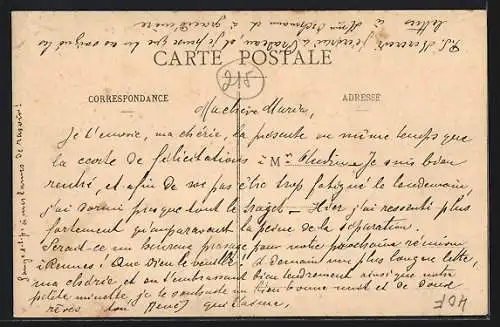 CARTE POSTALE
215
CORRESPONDANCE
ADRESSE
Ma chère Maria,
Je t'envoie, ma chérie, la présente en même temps que
la carte de félicitations à Mr. Je suis bien
rentré, et afin de ne pas être trop fatigué le lendemain,
j'ai dormi presque tout le trajet — Hier j'ai ressenti plus
fortement qu'auparavant la peine de la séparation.
Serait-ce un heureux présage pour notre prochaine réunion
à Rennes! Que Dieu le veuille! à demain une plus longue lettre,
ma chérie, et en t'embrassant bien tendrement ainsi que notre
petite minette, je te souhaite un bien bonne nuit et de doux
rêves ton René qui t'aime,
Songe à mes lames de rasoir!
P.S. je pense que tu
lettres à Mme
40F